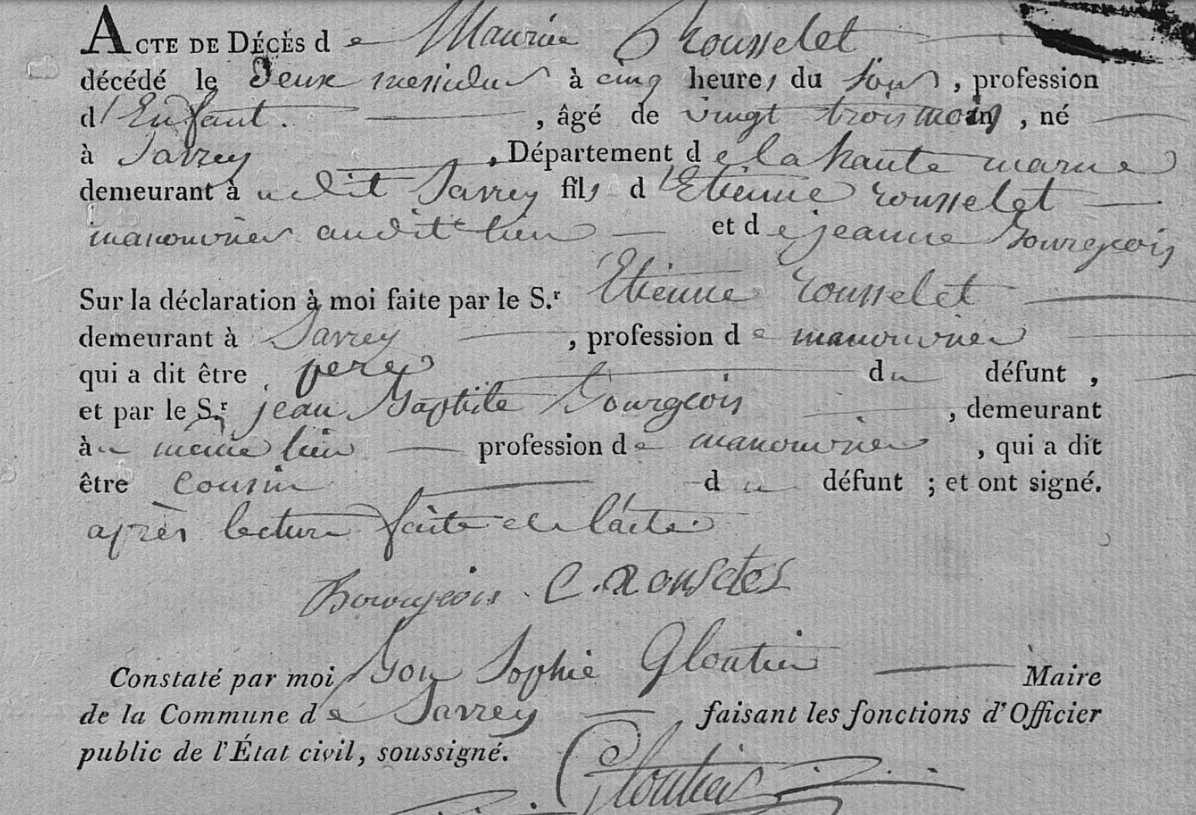 ACTE DE DÉCÈS de Maurice Rousselet
décédé le Deux messidor à cinq heures du soir, profession
d'Enfant. , âgé de vingt trois mois, né
à Savrey , Département de la haute marne
demeurant à udit Savrey fils d'Etienne rousselet
manouvrier audit lieu et de jeanne Bourgeois
Sur la déclaration à moi faite par le S.r Etienne rousselet
demeurant à Savrey , profession de manouvrier
qui a dit être pere du défunt ,
et par le S.r jean Baptiste Bourgeois , demeurant
àu même lieu profession de manouvrier , qui a dit
être cousin du défunt ; et ont signé.
après lecture faite de l'acte.
Bourgeois
Constaté par moi Sophie Gloutier Maire
de la Commune de Savrey faisant les fonctions d'Officier
public de l'État civil, soussigné.
Gloutier